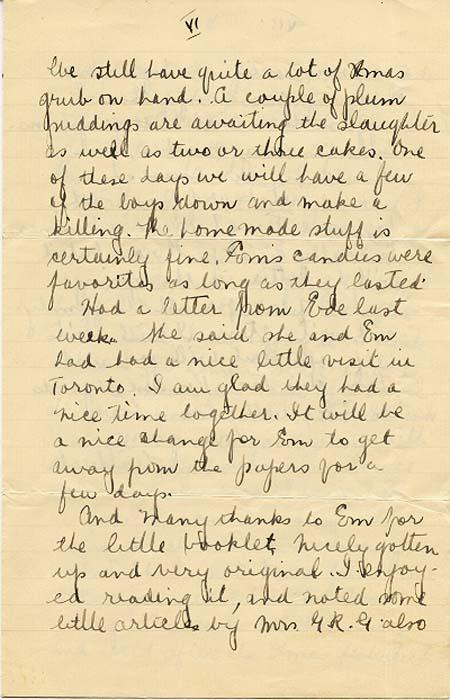 VI
We still have quite a lot of Xmas
grub on hand. A couple of plum
puddings are awaiting the slaughter
as well as two or three cakes. One
of these days we will have a few
of the boys down and make a
killing. The homemade stuff is
certainly fine. candies were
favorites as long as they lasted.
Had a letter from Ede last
week. She said she and Em
had had a nice little visit in
Toronto. I am glad they had a
nice time together. It will be
a nice change for Em to get
away from the papers for a
few days.
And many thanks to Em for
the little booklet, nicely gotten
up and very original. I enjoy-
ed reading it, and noted some
little articles by Mrs. G.R.G. also